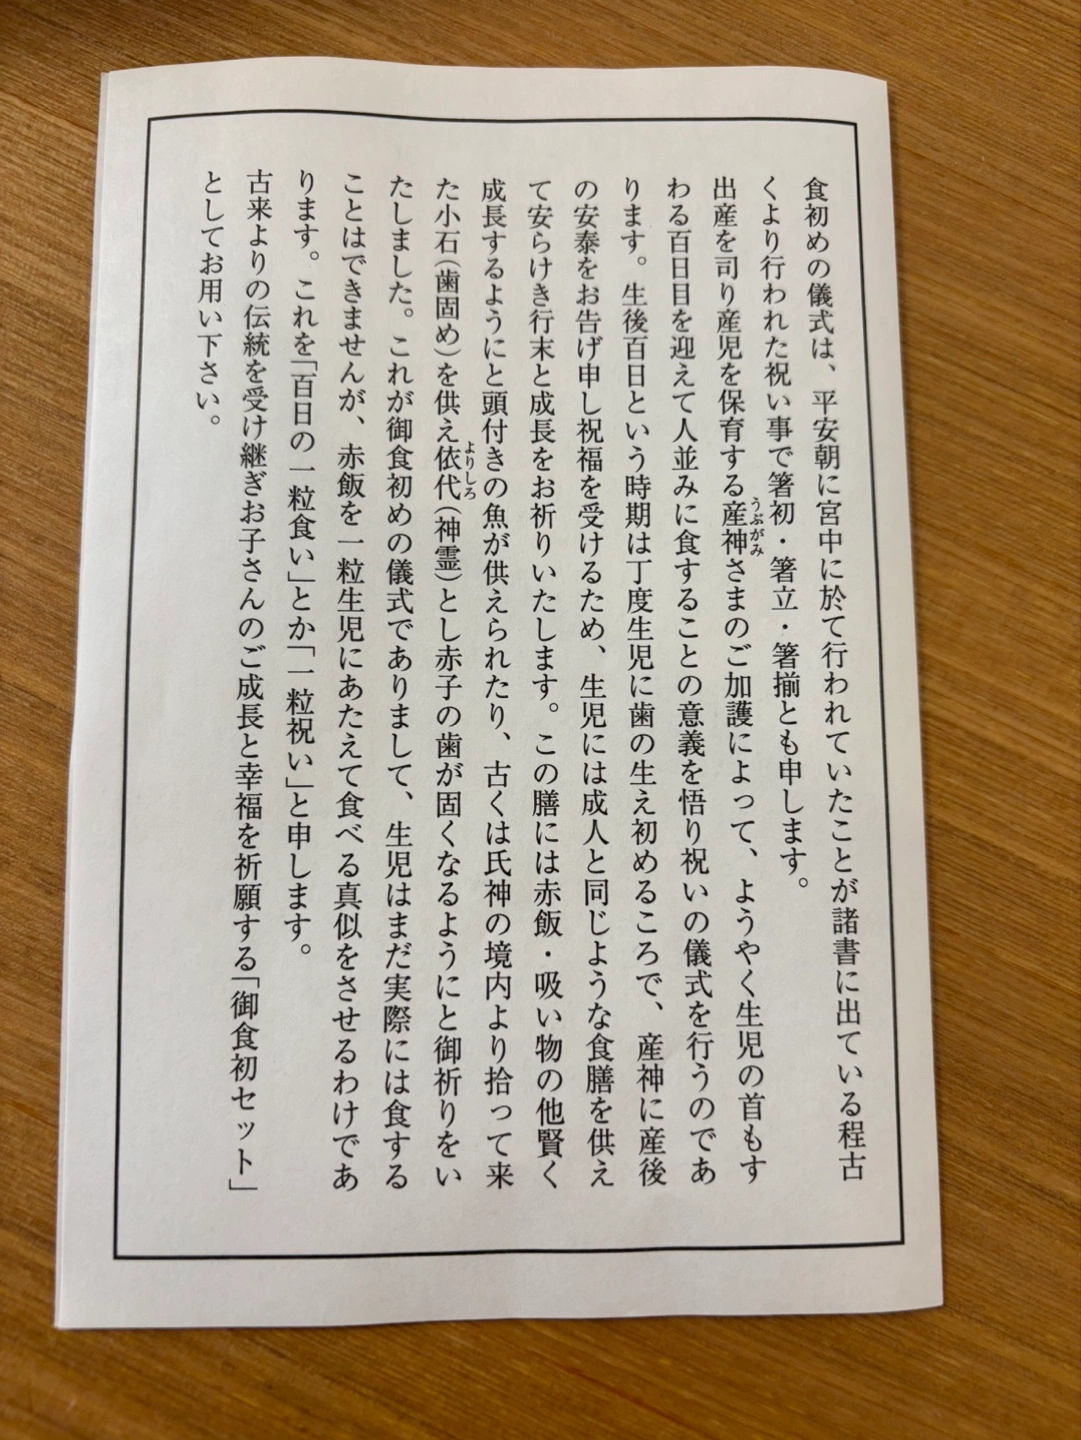 食初めの儀式は、平安朝に宮中に於て行われていたことが諸書に出ている程古
くより行われた祝い事で箸初・箸立・箸揃とも申します。
出産を司り産児を保育する産神さまのご加護によって、ようやく生児の首もす
うぶがみ
わる百日目を迎えて人並みに食することの意義を悟り祝いの儀式を行うのであ
ります。生後百日という時期は丁度生児に歯の生え初めるころで、産神に産後
の安泰をお告げ申し祝福を受けるため、生児には成人と同じような食膳を供え
て安らけき行末と成長をお祈りいたします。この膳には赤飯・吸い物の他賢く
成長するようにと頭付きの魚が供えられたり、古くは氏神の境内より拾って来
た小石(歯固め)を供え依代(神霊)とし赤子の歯が固くなるようにと御祈りをい
よりしろ
たしました。これが御食初めの儀式でありまして、生児はまだ実際には食する
ことはできませんが、赤飯を一粒生児にあたえて食べる真似をさせるわけであ
ります。これを「百日の一粒食い」とか「一粒祝い」と申します。
古来よりの伝統を受け継ぎお子さんのご成長と幸福を祈願する「御食初セット」
としてお用い下さい。